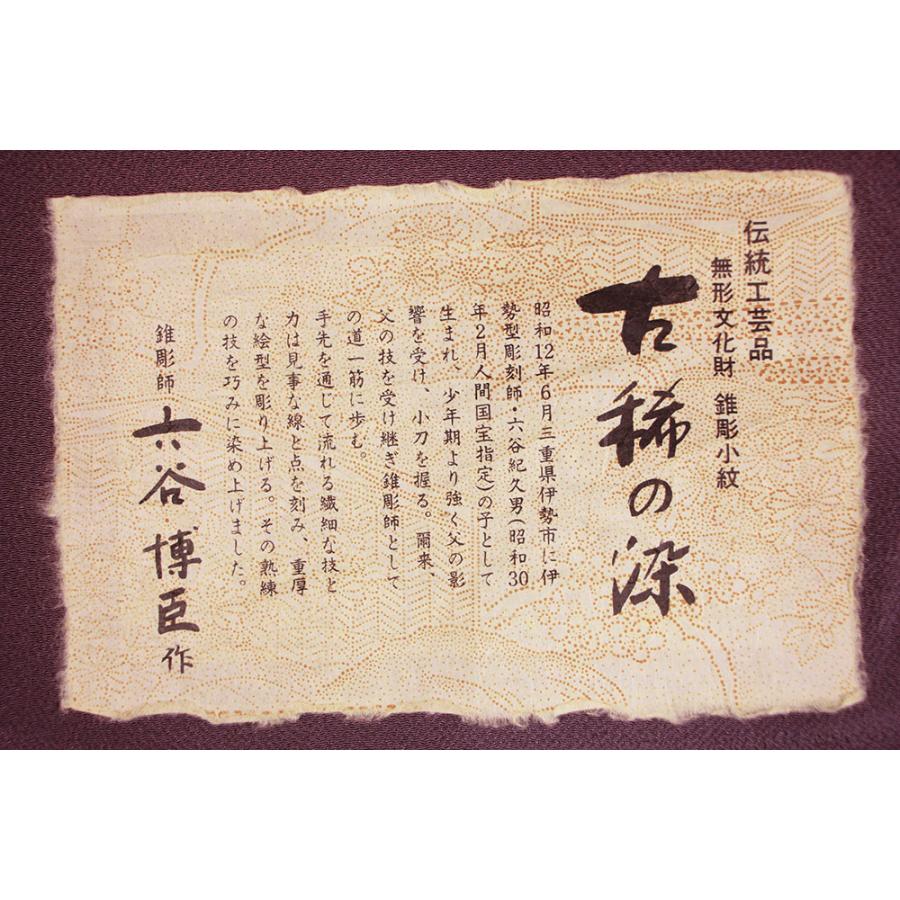 伝統工芸品
無形文化財 錐彫小紋
古稀の染
昭和12年6月三重県伊勢市に伊
勢型彫刻師・六谷紀久男(昭和30
年2月人間国宝指定)の子として
生まれ、少年期より強く父の影
響を受け、小刀を握る。爾来、
父の技を受け継ぎ錐彫師として
の道一筋に歩む。
手先を通じて流れる繊細な技と
力は見事な線と点を刻み、重厚
な絵型を彫り上げる。その熟練
の技を巧みに染め上げました。
錐彫師 六谷博臣作